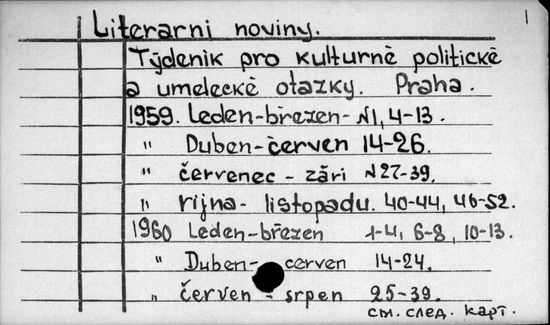 1
Literarni noviny.
Týdenik pro kulturně politické
a umelecké otazky. Praha.
1959. Leden-březen- N1, 4-13.
" Duben-červen 14-26.
" červenec - záři N27-39.
" rijna- listopadu. 40-44, 46-52.
1960 Leden-březen 1-4, 6-8, 10-13.
" Duben- cerven 14-24.
" červen - srpen 25-39.
см. след. карт.